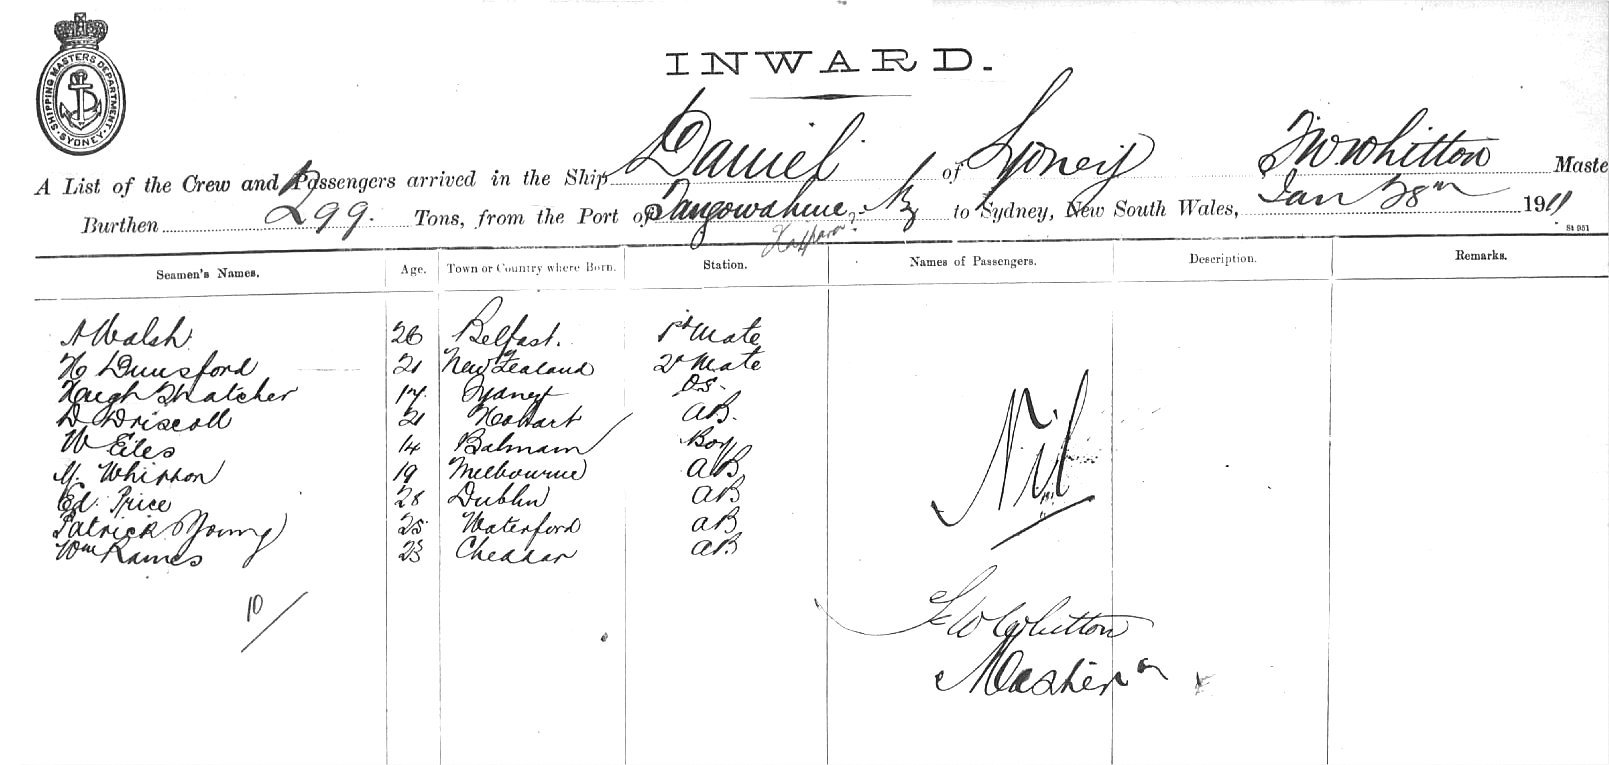 SHIPPING MASTERS DEPARTMENT. SYDNEY
INWARD.
A List of the Crew and Passengers arrived in the Ship Daniel of Sydney F W Whitton Maste
Burthen 299. Tons, from the Port of Tangowahine, NZ to Sydney, New South Wales, Jan 28th 1911
Kaipara
St 951
Seamen's Names. Age. Town or Country where Born. Station. Names of Passengers. Description. Remarks.
A Walsh 26 Belfast. 1st Mate
H Dunsford 21 New Zealand 2d Mate
Hugh Thatcher 17 Sydney OS.
D Driscoll 21 Hobart AB.
W Eiles 14 Balmain Boy
Whipton 19 Melbourne AB
Ed. Price 28 Dublin AB
Patrick Young 25 Waterford AB
Wm Rames 23 Cheddar AB
Nil
10/
F W Whitton
Master